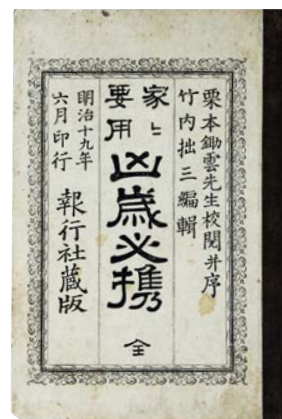 栗本鋤雲先生校閲并序
竹内拙三編輯
家々
要用
凶歳必携
全
明治十九年
六月印行
報行社蔵版